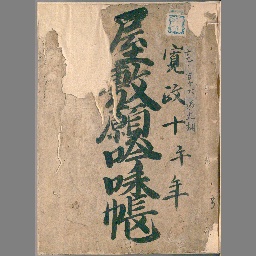 寛政十午年
屋敷願吟味帳